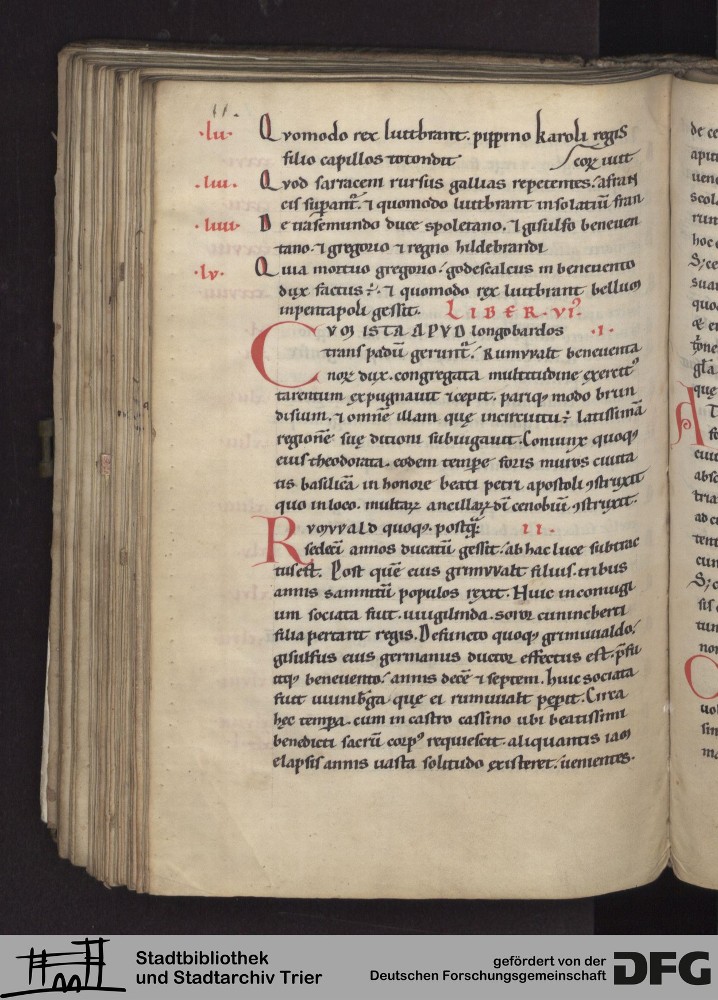 ·lii· Quomodo rex liutbrant. pippino karoli regis
filio capillos totondit
·liii· Quod sarraceni rursus gallias repetentes. a fran
cis supant᷑. ⁊ quomodo liutbrant in solatiū fran
corꝝ iuit
·liiii· De trasemundo duce spoletano. ⁊ gisulfo beneuen
tano. ⁊ gregorio ⁊ regno hildebrandi
·lv· Quia mortuo gregorio. godescalcus in beneuento
dux factus ÷. ⁊ quomodo rex liutbrant bellum
in pentapoli gessit. LIBER·VI⁹
CVM ISTA APVD longobardos ·I·
trans padū gerunt᷑. Rumuualt beneuenta
norꝝ dux. congregata multitudine exercit⁹
tarentum expugnauit ⁊ cepit. pariqꝫ modo brun
disium. ⁊ omnē illam quę in circuitu ÷ latissimā
regionē suę ditioni subiugauit. Coniunx quoqꝫ
eius theodorata. eodem tempe foris muros ciuita
tis basilicā in honore beati petri apostoli ꝯstruxit
quo in loco. multarꝝ ancillarꝝ dī cenobiū ꝯstruxit.
RVMVVALD quoqꝫ. postqᷓ: II·
sedecī annos ducatū gessit. ab hac luce subtrac
tus est. Post quē eius grimuualt filius. tribus
annis samnitū populos rexit. Huic in coniugi
um sociata fuit. uuigilinda. soror cunincberti
filia pertarit regis. Defuncto quoqꝫ grimuualdo.
gisulfus eius germanus ductor effectus est. p̄fu
itqꝫ beneuento. annis decē ⁊ septem. huic sociata
fuit uuinibga quę ei rumuualt pepit. Circa
hęc tempa. cum in castro cassino ubi beatissimi
benedicti sacrū corp⁹ requiescit. aliquantis iam
elapsis annis uasta solitudo existeret. uenientes.
de ce
Stadtbibliothek
und Stadtarchiv Trier
gefördert von der
Deutschen Forschungsgemeinschaft
DFG